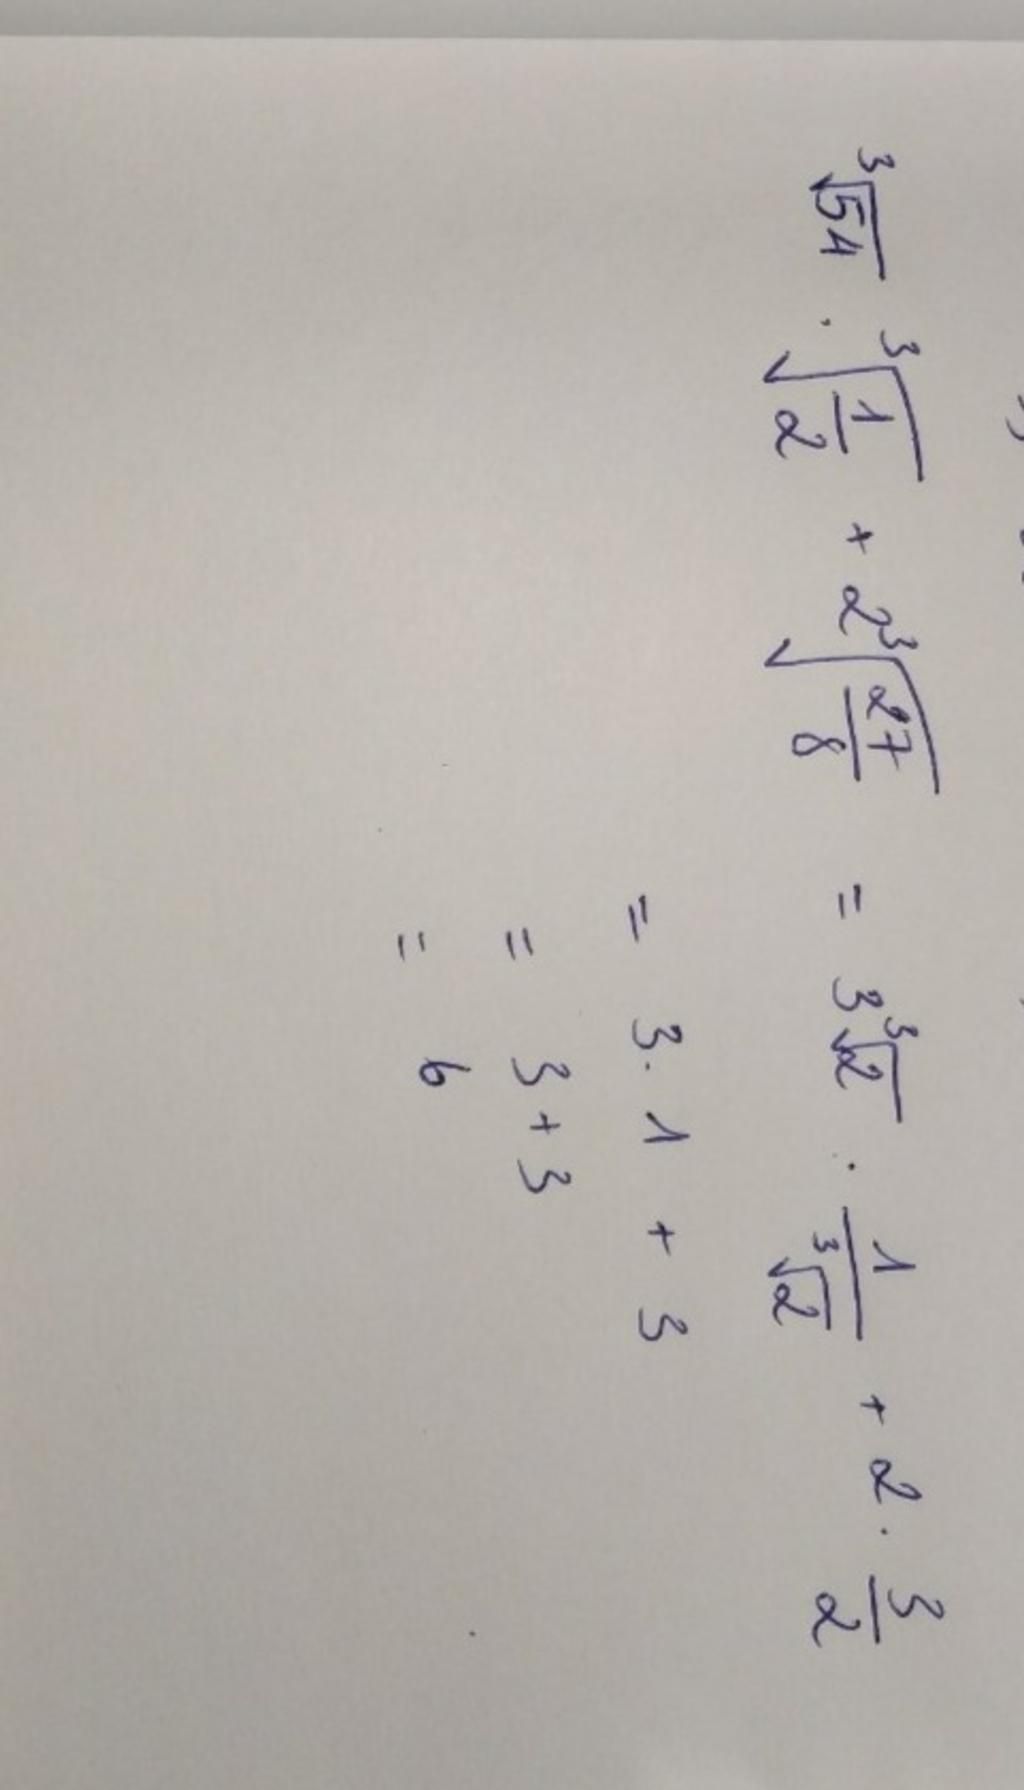 ∛54 · ∛(1/2) + 2∛(27/8) = 3∛2 · 1/∛2 + 2 · 3/2
= 3 · 1 + 3
= 3 + 3
= 6